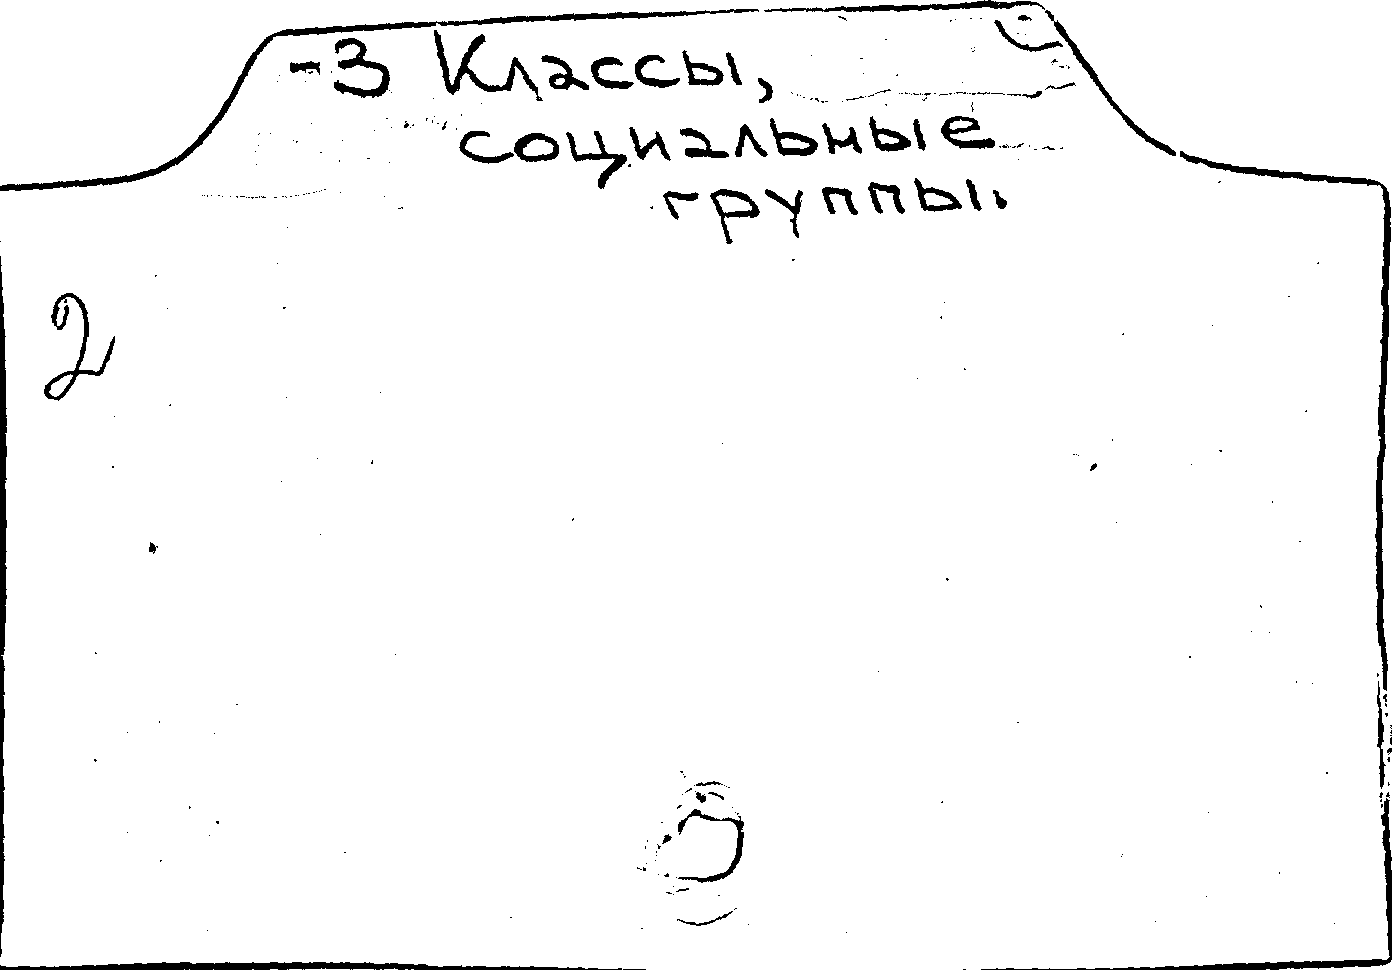 -3 Классы,
социальные
группы.
2